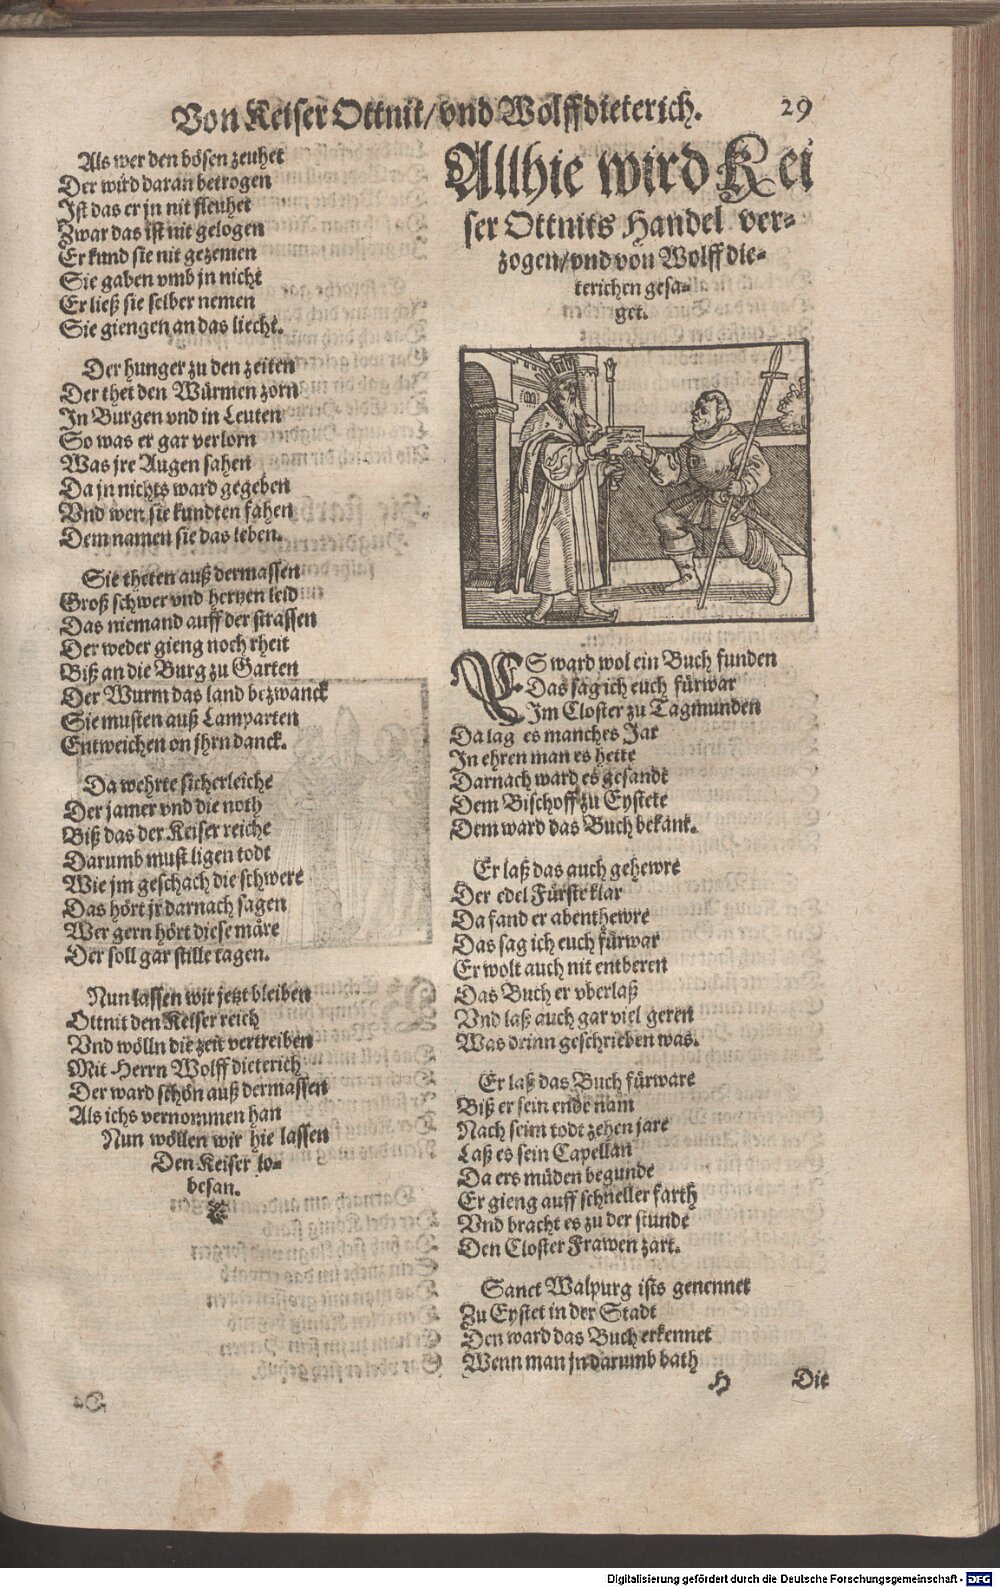 Von Keiser Ottnit/ vnd Wolffdieterich. 29
Als wer den bösen zeuhet
Der wird daran betrogen
Ist das er jn nit fleuhet
Zwar das ist nit gelogen
Er kund sie nit gezemen
Sie gaben vmb jn nicht
Er ließ sie selber nemen
Sie giengen an das liecht.
Der hunger zu den zeiten
Der thet den Würmen zorn
In Burgen vnd in Leuten
So was er gar verlorn
Was jre Augen sahen
Da jn nichts ward gegeben
Vnd wen sie kundten fahen
Dem namen sie das leben.
Sie theten auß dermassen
Groß schwer vnd hertzen leid
Das niemand auff der strassen
Der weder gieng noch rheit
Biß an die Burg zu Garten
Der Wurm das land bezwanck
Sie musten auß Lamparten
Entweichen on jhrn danck.
Da wehrte sicherleiche
Der jamer vnd die noth
Biß das der Keiser reiche
Darumb must ligen todt
Wie jm geschach die schwere
Das hört jr darnach sagen
Wer gern hört diese märe
Der soll gar stille tagen.
Nun lassen wir jetzt bleiben
Ottnit den Keiser reich
Vnd wölln die zeit vertreiben
Mit Herrn Wolff dieterich
Der ward schön auß dermassen
Als ichs vernommen han
Nun wöllen wir hie lassen
Den Keiser lo-
besan.
Allhie wird Kei
ser Ottnits Handel ver-
zogen/ vnd von Wolff die-
terichen gesa-
get.
ES ward wol ein Buch funden
Das sag ich euch fürwar
Im Closter zu Tagmunden
Da lag es manches Jar
In ehren man es hette
Darnach ward es gesandt
Dem Bischoff zu Eystete
Dem ward das Buch bekant.
Er laß das auch gehewre
Der edel Fürste klar
Da fand er abenthewre
Das sag ich euch fürwar
Er wolt auch nit entberen
Das Buch er vberlaß
Vnd laß auch gar viel geren
Was drinn geschrieben was.
Er laß das Buch fürware
Biß er sein ende nam
Nach seim todt zehen jare
Laß es sein Capellan
Da ers müden begunde
Er gieng auff schneller farth
Vnd bracht es zu der stunde
Den Closter Frawen zart.
Sanct Walpurg ists genennet
Zu Eystet in der Stadt
Den ward das Buch erkennet
Wenn man jn darumb bath
H Die
Digitalisierung gefördert durch die Deutsche Forschungsgemeinschaft - DFG